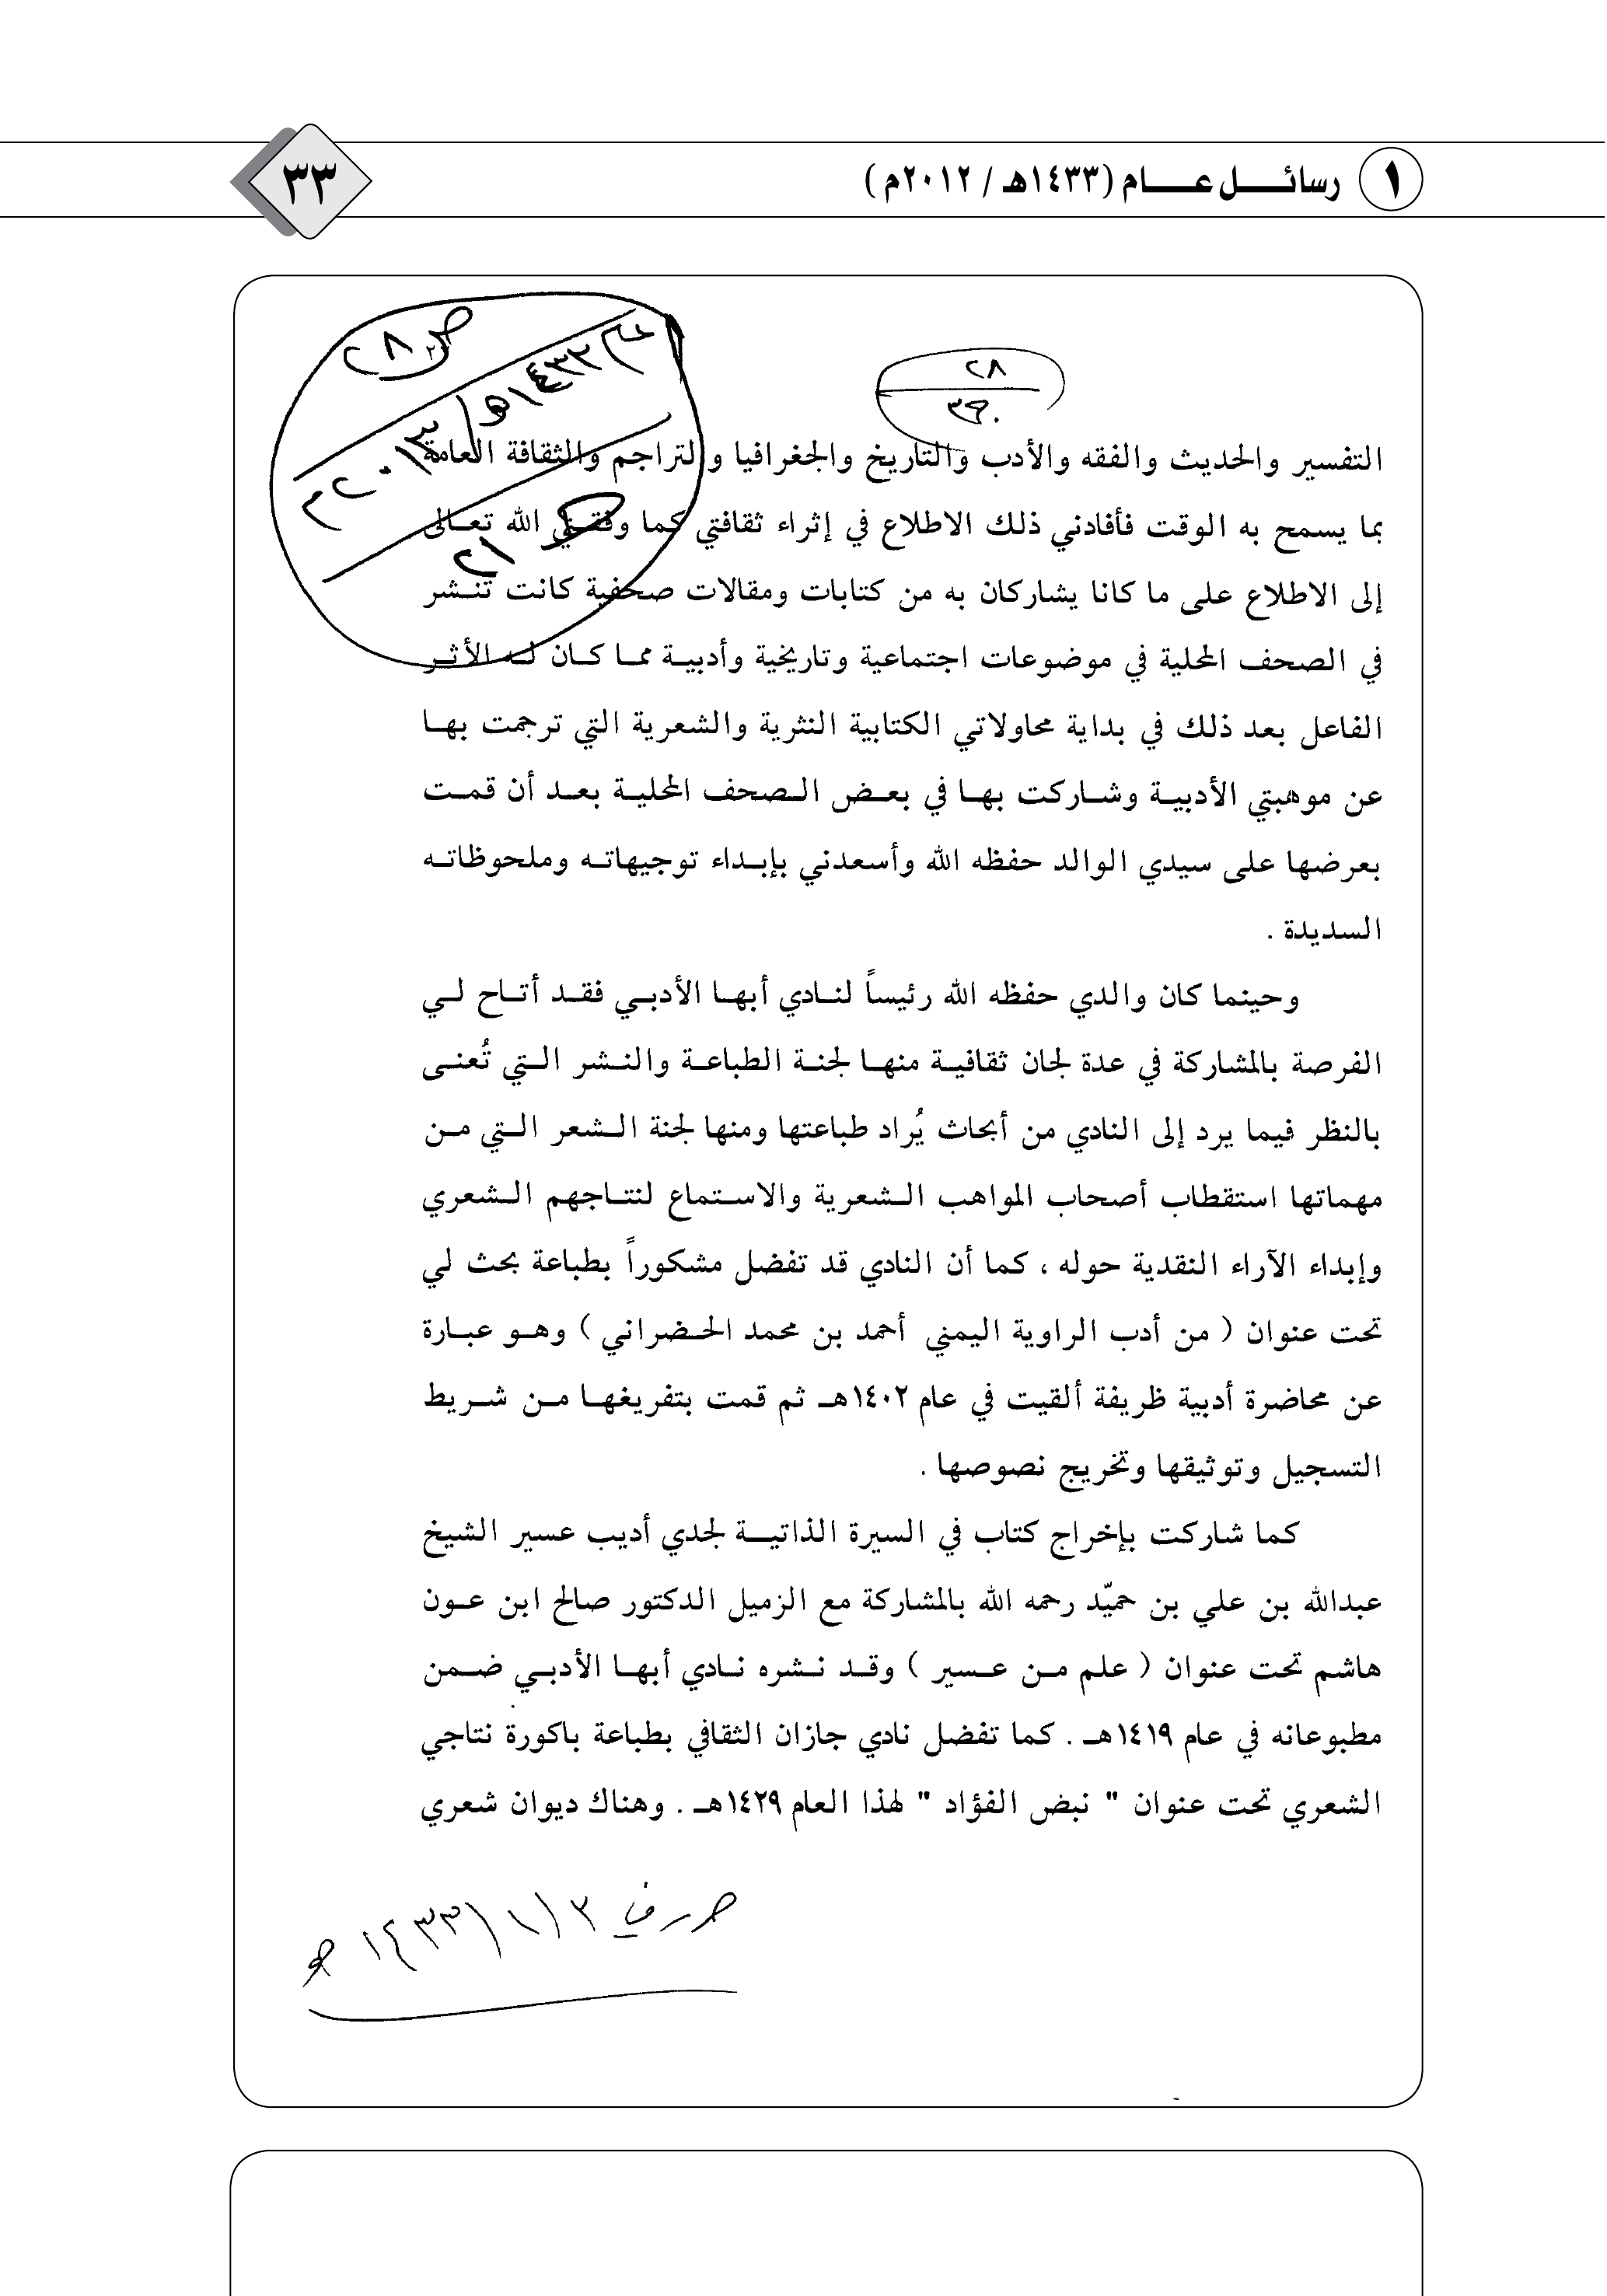 ١ رسائل عام (١٤٣٣هـ / ٢٠١٢م)
٣٣
٢٨
التفسير والحديث والفقه والأدب والتاريخ والجغرافيا والتراجم والثقافة العامة
بما يسمح به الوقت فأفادني ذلك الاطلاع في إثراء ثقافتي كما وفقني الله تعالى
إلى الاطلاع على ما كانا يشاركان به من كتابات ومقالات صحفية كانت تنشر
في الصحف المحلية في موضوعات اجتماعية وتاريخية وأدبية مما كان له الأثر
الفاعل بعد ذلك في بداية محاولاتي الكتابية النثرية والشعرية التي ترجمت بها
عن موهبتي الأدبية وشاركت بها في بعض الصحف المحلية بعد أن قمت
بعرضها على سيدي الوالد حفظه الله وأسعدني بإبداء توجيهاته وملحوظاته
السديدة .
وحينما كان والدي حفظه الله رئيساً لنادي أبها الأدبي فقد أتاح لي
الفرصة بالمشاركة في عدة لجان ثقافية منها لجنة الطباعة والنشر التي تُعنى
بالنظر فيما يرد إلى النادي من أبحاث يُراد طباعتها ومنها لجنة الشعر التي من
مهماتها استقطاب أصحاب المواهب الشعرية والاستماع لنتاجهم الشعري
وإبداء الآراء النقدية حوله ، كما أن النادي قد تفضل مشكوراً بطباعة بحث لي
تحت عنوان ( من أدب الراوية اليمني أحمد بن محمد الحضراني ) وهو عبارة
عن محاضرة أدبية ظريفة ألقيت في عام ١٤٠٢هـ ثم قمت بتفريغها من شريط
التسجيل وتوثيقها وتخريج نصوصها .
كما شاركت بإخراج كتاب في السيرة الذاتية لجدي أديب عسير الشيخ
عبدالله بن علي بن حميّد رحمه الله بالمشاركة مع الزميل الدكتور صالح ابن عون
هاشم تحت عنوان ( علم من عسير ) وقد نشره نادي أبها الأدبي ضمن
مطبوعانه في عام ١٤١٩هـ . كما تفضل نادي جازان الثقافي بطباعة باكورة نتاجي
الشعري تحت عنوان " نبض الفؤاد " لهذا العام ١٤٢٩هـ . وهناك ديوان شعري